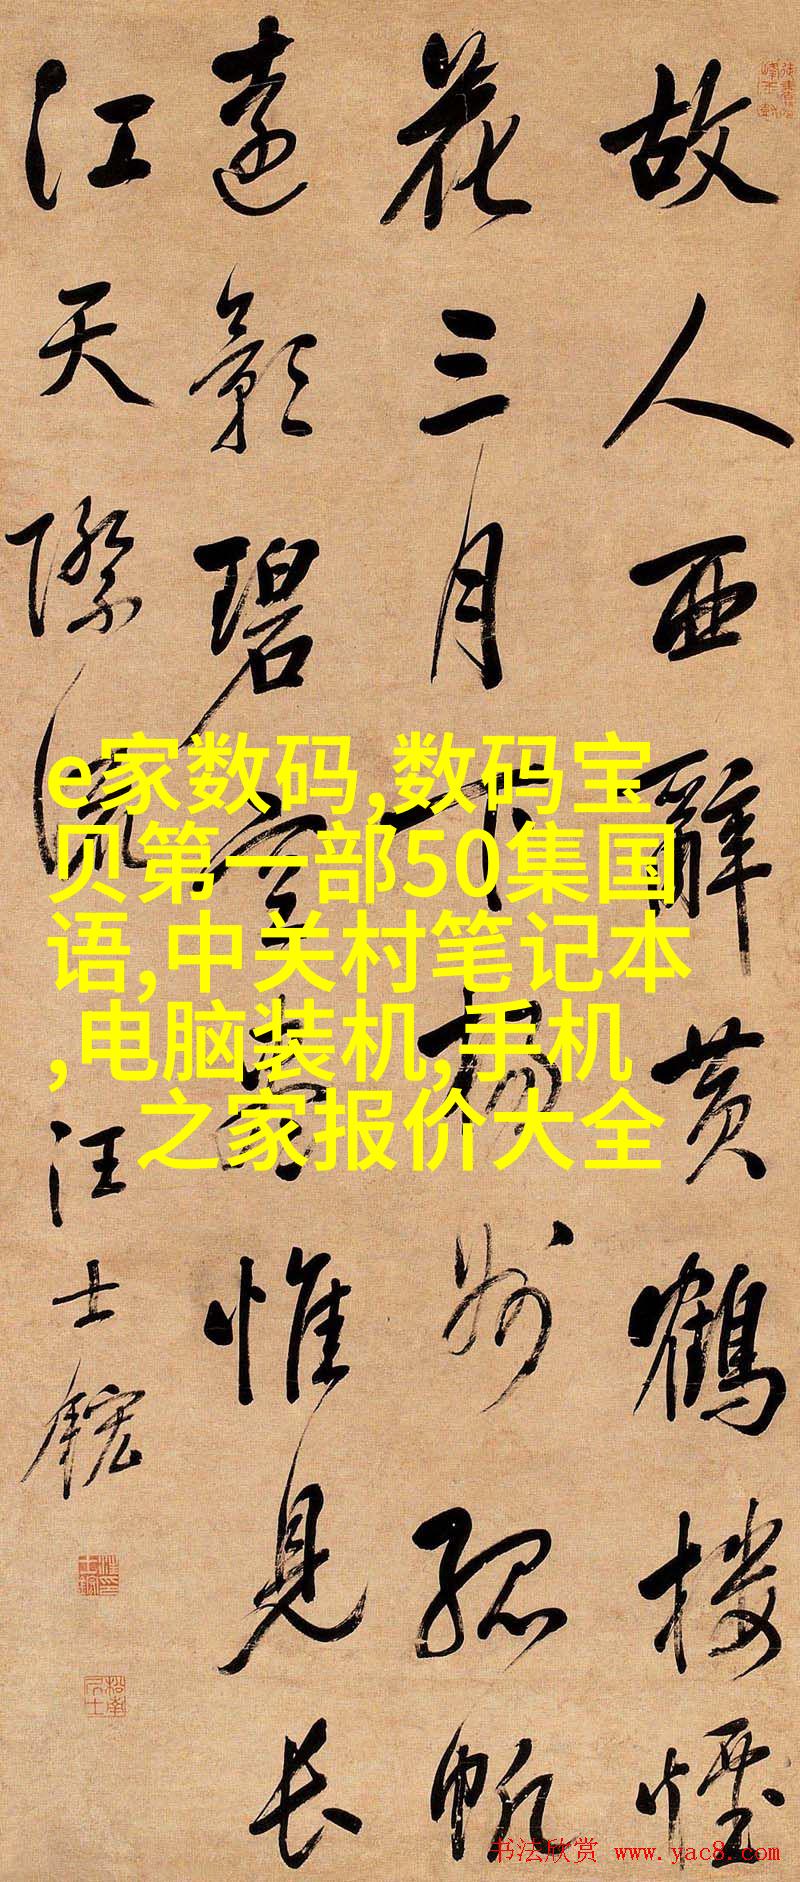 故人西辭黄鶴樓煙
花三月下揚州孤帆
遠影碧空盡惟見長
江天際流
汪士鋐
e家数码,数码宝
贝第一部50集国
语,中关村笔记本
,电脑装机,手机
之家报价大全
书法欣赏 www.yac8.com